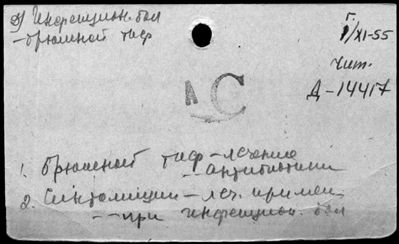 2) Инфекцион. бол
– брюшной тиф
1/XI-55
Чит.
Д-14417
А С
1. Брюшной тиф – лечение
– антибиотики
2. Синтомицин – леч. примен.
– – при инфекцион. бол